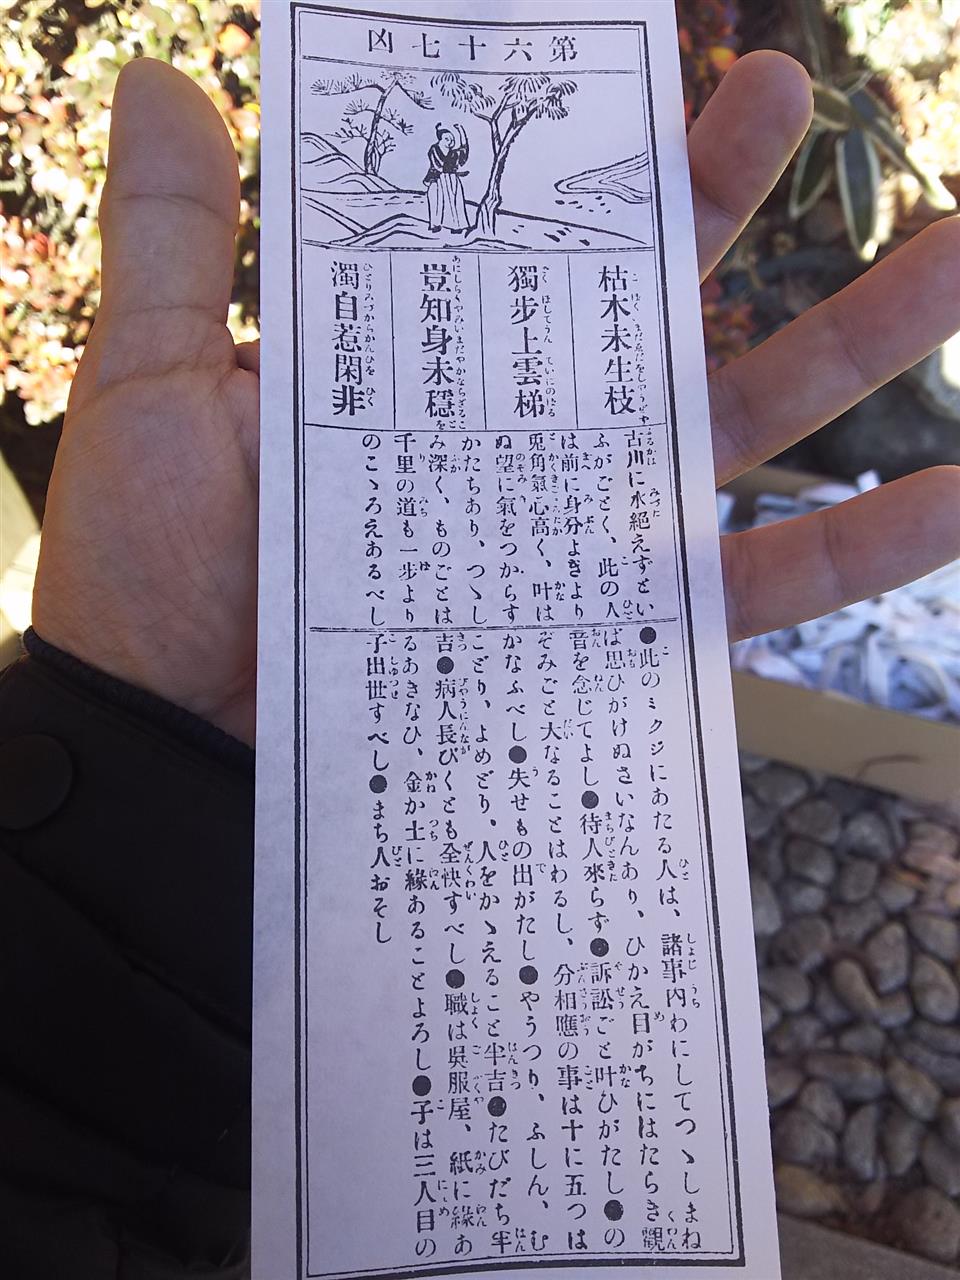 第六十七凶
枯木未生枝
獨步上雲梯
豈知身未穩
獨自惹閑非
古川に水絕えずとい
ふがごとく、此の人
は前に身分よきより
兎角氣心高く、叶は
ぬ望に氣をつからす
かたちあり、つゝし
み深く、ものごとは
千里の道も一步より
のこゝろえあるべし
●此のミクジにあたる人は、諸事內わにしてつゝしまね
ば思ひがけぬさいなんあり、ひかえ目がちにはたらき觀
音を念じてよし●待人來らず●訴訟ごと叶ひがたし●の
ぞみごと大なることはわるし、分相應の事は十に五つは
かなふべし●失せもの出がたし●やうつり、ふしん、む
こどり、よめどり、人をかゝえること半吉●たびだち半
吉●病人長びくとも全快すべし●職は吳服屋、紙に緣あ
るあきなひ、金か土に緣あることよろし●子は三人目の
子出世すべし●まち人おそし